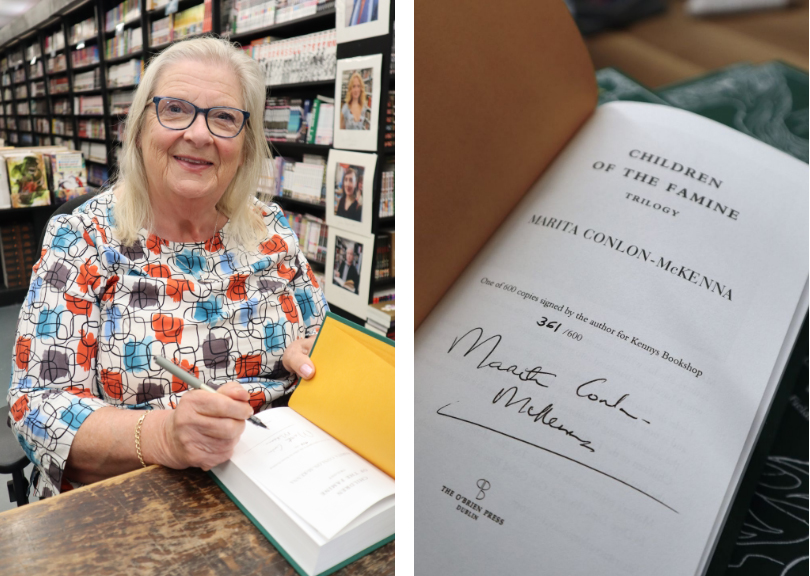 CHILDREN
OF THE FAMINE
TRILOGY
MARITA CONLON-McKENNA
One of 600 copies signed by the author for Kennys Bookshop
361/600
Marita Conlon-
McKenna
THE O'BRIEN PRESS
DUBLIN